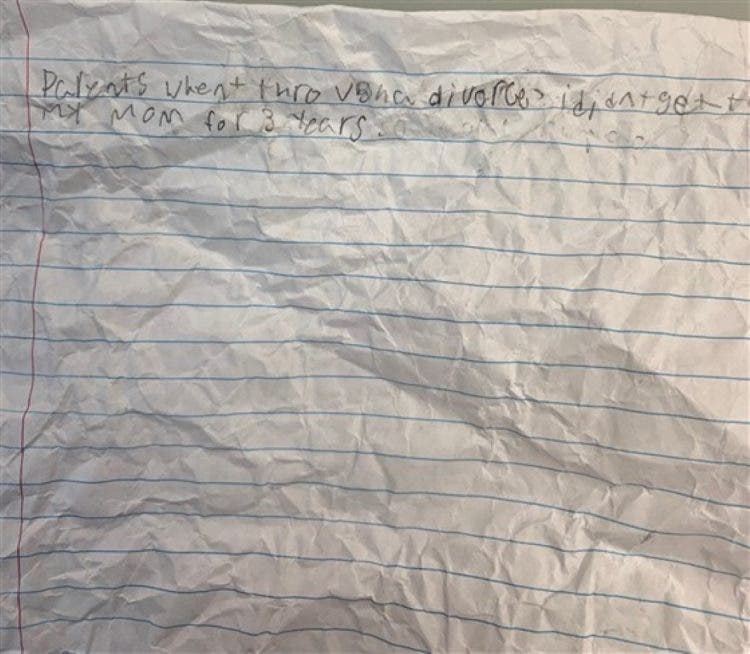 Parents whent thro ugh a divorce, i didnt get t
my mom for 3 years.